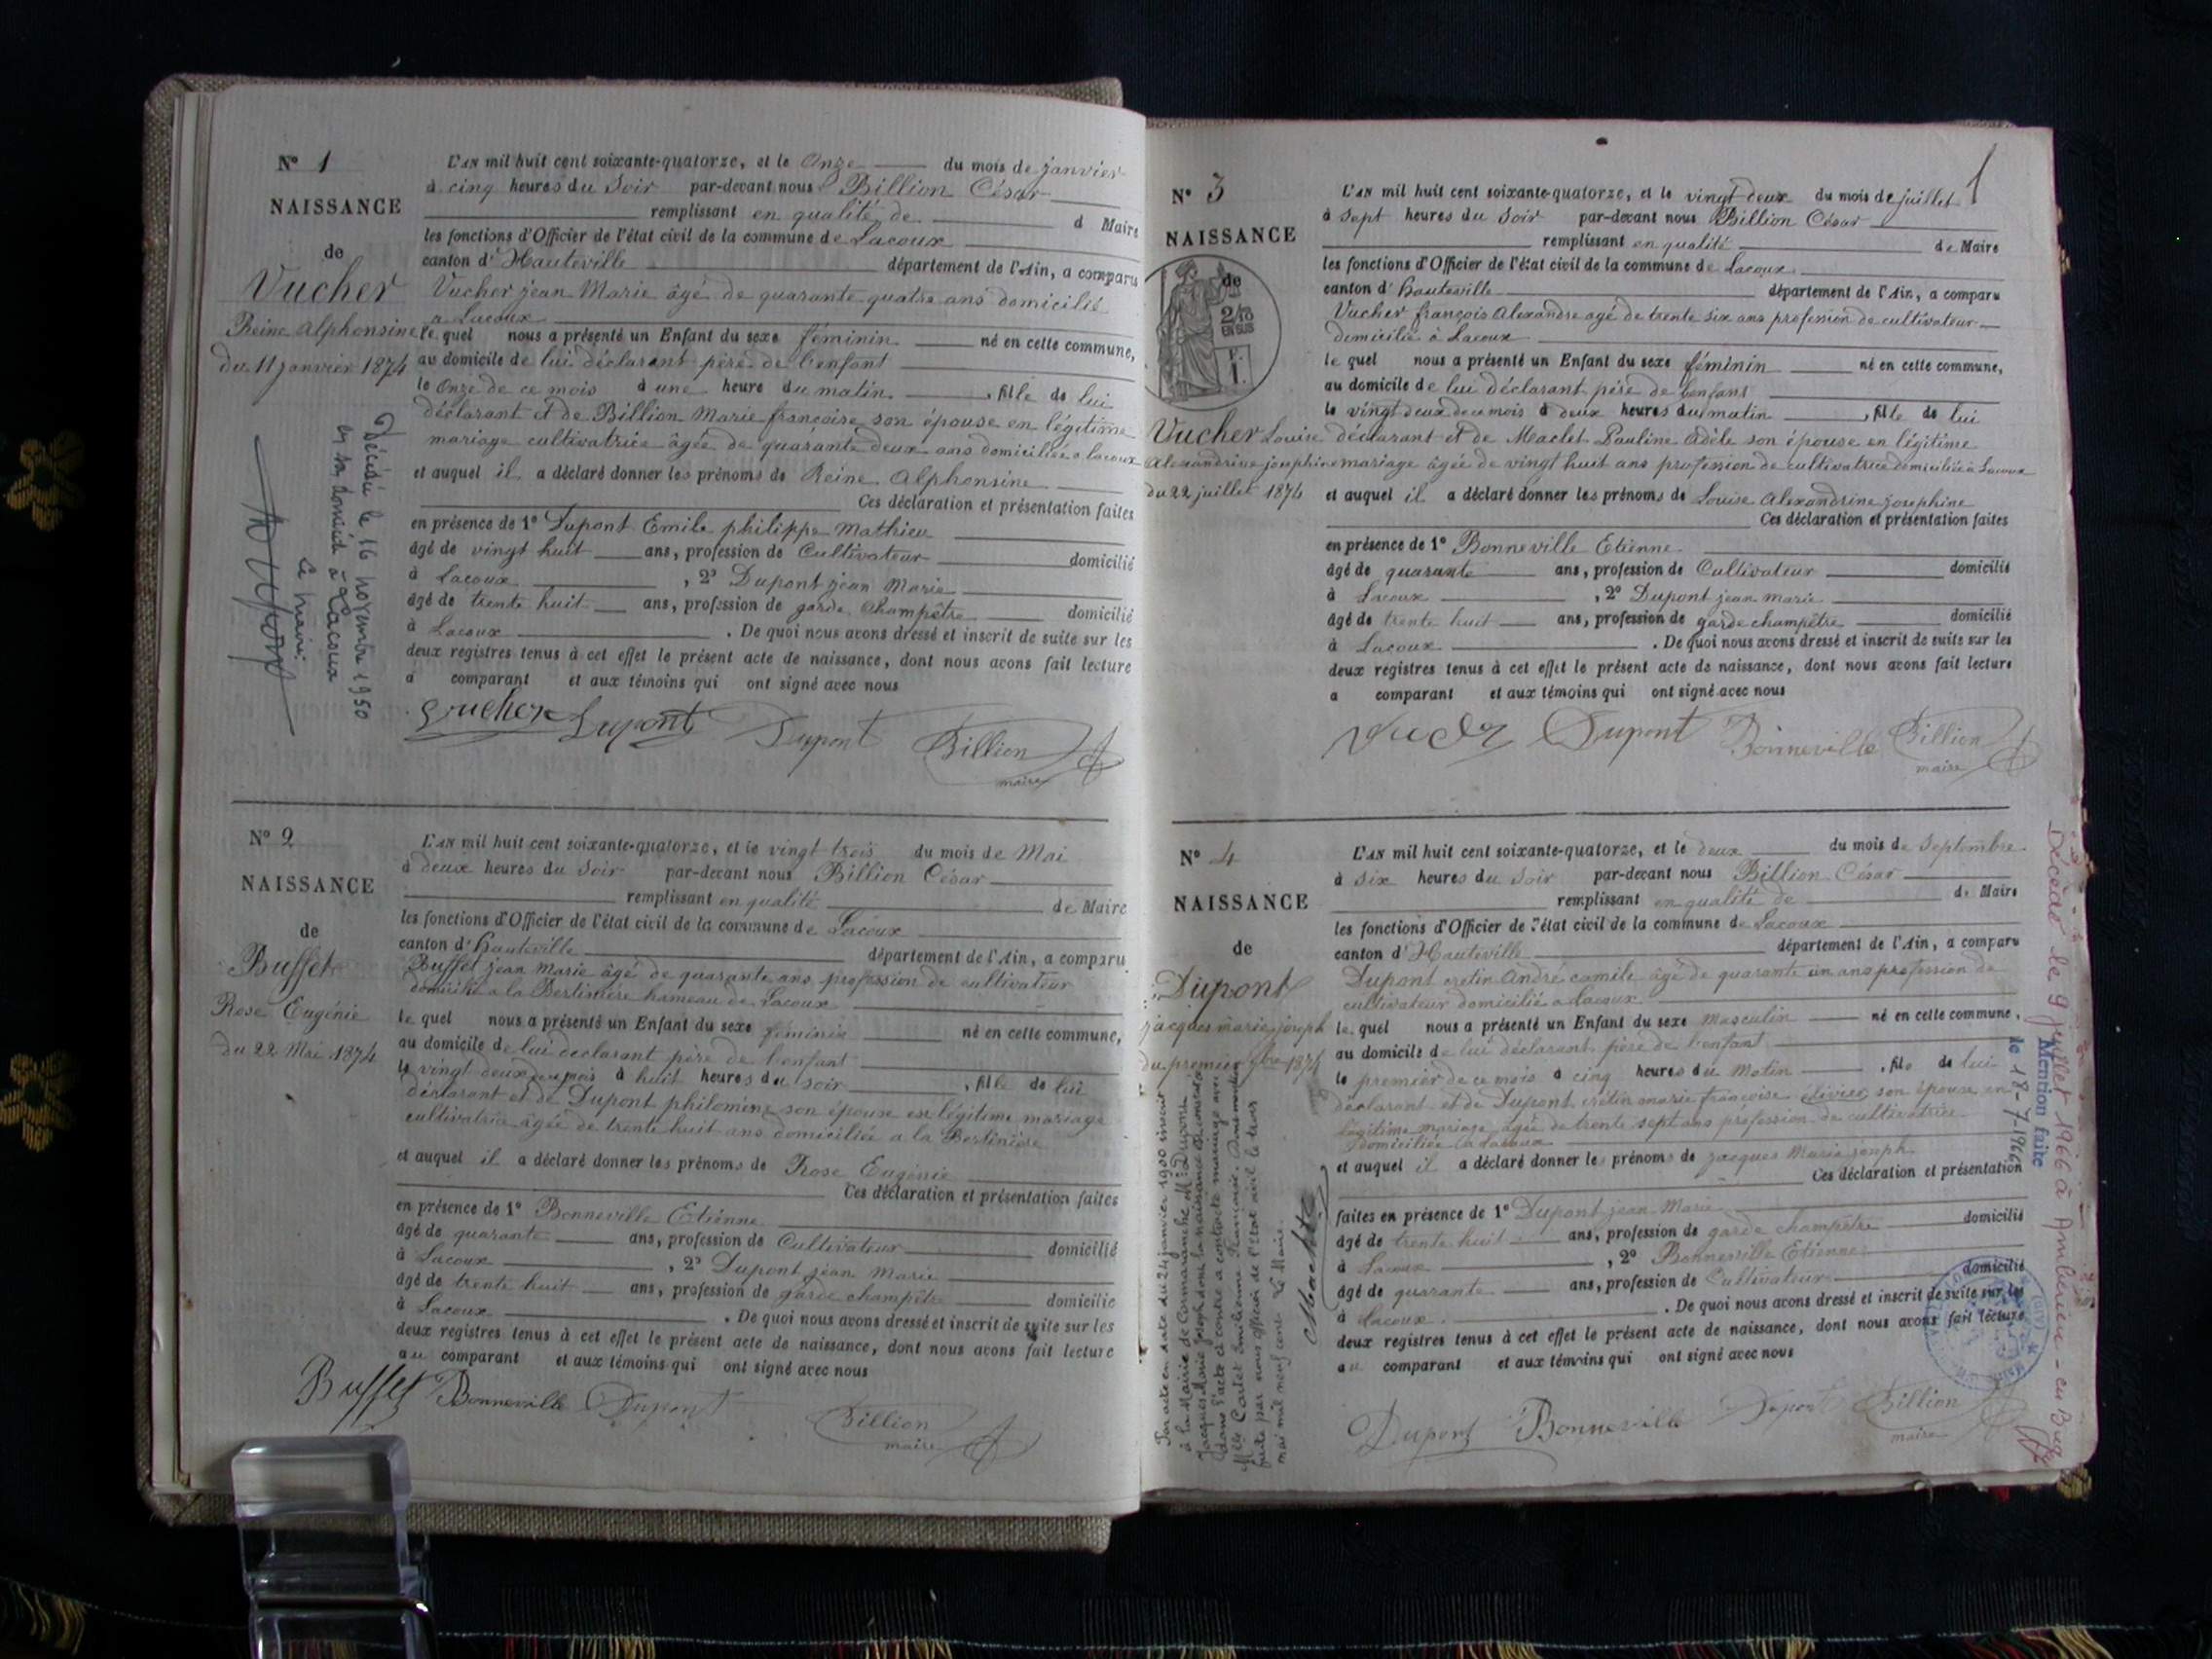 N° 1
NAISSANCE
de
Vucher
Reine Alphonsine
du 11 janvier 1874
Décédée le 16 novembre 1950
en son domicile à Lacoux
Le maire
L'AN mil huit cent soixante-quatorze, et le Onze du mois de janvier
à cinq heures du Soir par-devant nous Billion César
remplissant en qualité de d Maire
les fonctions d'Officier de l'état civil de la commune de Lacoux
canton d'Hauteville département de l'Ain, a comparu
Vucher jean Marie âgé de quarante quatre ans domicilié
a Lacoux
le quel nous a présenté un Enfant du sexe féminin né en cette commune,
au domicile de lui déclarant père de l'enfant
le Onze de ce mois à une heure du matin, fille de lui
déclarant et de Billion Marie françoise son épouse en légitime
mariage cultivatrice âgée de quarante deux ans domiciliée a Lacoux
et auquel il a déclaré donner les prénoms de Reine Alphonsine
Ces déclaration et présentation faites
en présence de 1° Dupont Emile philippe Mathieu
âgé de vingt huit ans, profession de Cultivateur domicilié
à Lacoux, 2° Dupont jean Marie
âgé de trente huit ans, profession de garde champêtre domicilié
à Lacoux. De quoi nous avons dressé et inscrit de suite sur les
deux registres tenus à cet effet le présent acte de naissance, dont nous avons fait lecture
a comparant et aux témoins qui ont signé avec nous
Vucher Dupont Dupont Billion
maire
N° 2
NAISSANCE
de
Buffet
Rose Eugénie
du 22 Mai 1874
L'AN mil huit cent soixante-quatorze, et le vingt trois du mois de Mai
à deux heures du Soir par-devant nous Billion César
remplissant en qualité de Maire
les fonctions d'Officier de l'état civil de la commune de Lacoux
canton d'hauteville département de l'Ain, a comparu
Buffet jean Marie âgé de quarante ans profession de cultivateur
domicilié a la Bertinière hameau de Lacoux
le quel nous a présenté un Enfant du sexe féminin né en cette commune,
au domicile de lui déclarant père de l'enfant
le vingt deux du mois à huit heures du soir, fille de lui
déclarant et de Dupont philomène son épouse en légitime mariage
cultivatrice âgée de trente huit ans domiciliée a la Bertinière
et auquel il a déclaré donner les prénoms de Rose Eugénie
Ces déclaration et présentation faites
en présence de 1° Bonneville Etienne
âgé de quarante ans, profession de Cultivateur domicilié
à Lacoux, 2° Dupont jean Marie
âgé de trente huit ans, profession de garde champêtre domicilié
à Lacoux. De quoi nous avons dressé et inscrit de suite sur les
deux registres tenus à cet effet le présent acte de naissance, dont nous avons fait lecture
au comparant et aux témoins qui ont signé avec nous
Buffet Bonneville Dupont Billion
maire
1
N° 3
NAISSANCE
de
Vucher Louise
Alexandrine josephine
du 22 juillet 1874
L'AN mil huit cent soixante-quatorze, et le vingt-deux du mois de juillet
à sept heures du Soir par-devant nous Billion César
remplissant en qualité de Maire
les fonctions d'Officier de l'état civil de la commune de Lacoux
canton d'hauteville département de l'Ain, a comparu
Vucher françois Alexandre agé de trente six ans profession de cultivateur
domicilié à Lacoux
le quel nous a présenté un Enfant du sexe féminin né en cette commune,
au domicile de lui déclarant père de l'enfant
le vingt deux du mois à deux heures du matin, fille de lui
déclarant et de Maclet Pauline Adèle son épouse en légitime
mariage âgée de vingt huit ans profession de cultivatrice domiciliée à Lacoux
et auquel il a déclaré donner les prénoms de Louise Alexandrine josephine
Ces déclaration et présentation faites
en présence de 1° Bonneville Etienne
âgé de quarante ans, profession de Cultivateur domicilié
à Lacoux, 2° Dupont jean marie
âgé de trente huit ans, profession de garde champêtre domicilié
à Lacoux. De quoi nous avons dressé et inscrit de suite sur les
deux registres tenus à cet effet le présent acte de naissance, dont nous avons fait lecture
a comparant et aux témoins qui ont signé avec nous
Vucher Dupont Bonneville Billion
maire
N° 4
NAISSANCE
de
Dupont
jacques marie joseph
du premier 7bre 1874
L'AN mil huit cent soixante-quatorze, et le deux du mois de Septembre
à six heures du Soir par-devant nous Billion César
remplissant en qualité de de Maire
les fonctions d'Officier de l'état civil de la commune de Lacoux
canton d'Hauteville département de l'Ain, a comparu
Dupont crétin André camile âgé de quarante un ans profession de
cultivateur domicilié a Lacoux
le quel nous a présenté un Enfant du sexe masculin né en cette commune,
au domicile de lui déclarant père de l'enfant
le premier de ce mois à cinq heures du Matin, fils de lui
déclarant et de Dupont crétin marie françoise son épouse en
légitime mariage âgée de trente sept ans profession de cultivatrice
domiciliée a Lacoux
et auquel il a déclaré donner les prénoms de jacques Marie joseph
Ces déclaration et présentation
faites en présence de 1° Dupont jean Marie
âgé de trente huit ans, profession de garde champêtre domicilié
à Lacoux, 2° Bonneville Etienne
âgé de quarante ans, profession de Cultivateur domicilié
à Lacoux. De quoi nous avons dressé et inscrit de suite sur les
deux registres tenus à cet effet le présent acte de naissance, dont nous avons fait lecture
au comparant et aux témoins qui ont signé avec nous
Dupont Bonneville Dupont Billion
maire
Par acte en date du 24 janvier 1900 inscrit
à la Mairie de Cormaranche Mr Dupont
Jacques Marie Joseph dont la naissance est constatée
dans l'acte ci contre a contracté mariage avec
Mlle Cartet
faite par nous officier de l'Etat civil
mai mil neuf cent Le Maire
Décédé le 9 juillet 1966 à Ambérieu-en-Bugey
Mention faite
le 18-7-1966